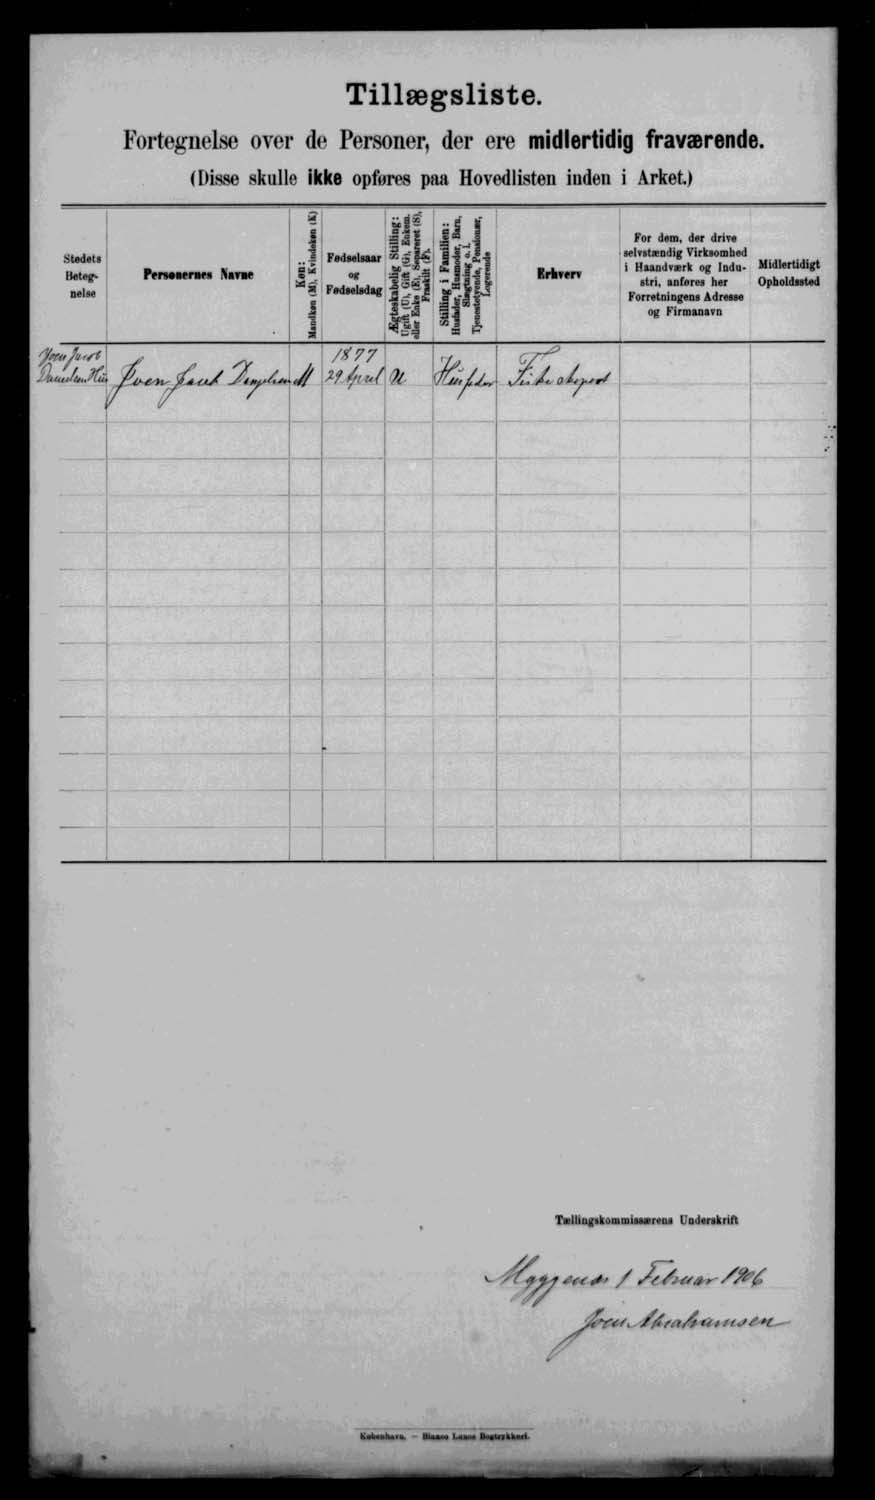 Tillægsliste.
Fortegnelse over de Personer, der ere midlertidig fraværende.
(Disse skulle ikke opføres paa Hovedlisten inden i Arket.)
Stedets
Beteg-
nelse
Personernes Navne
Køn:
Mandkøn (M), Kvindekøn (K)
Fødselsaar
og
Fødselsdag
Ægteskabelig Stilling:
Ugift (U), Gift (G), Enkem.
eller Enke (E), Separeret (S),
Fraskilt (F).
Stilling i Familien:
Husfader, Husmoder, Barn,
Slægtning o. l.
Tjenestetyende, Pensionær,
Logerende
Erhverv
For dem, der drive
selvstændig Virksomhed
i Haandværk og Indu-
stri, anføres her
Forretningens Adresse
og Firmanavn
Midlertidigt
Opholdssted
Joen Jacob
Danielsen Hus
Joen Jacob Danjelsen
M
1877
29 April
U
Husfader
Fiske
Tællingskommissærens Underskrift
Myggenæs 1 Februar 1906
Joen Abrahamsen
København. — Bianco Lunos Bogtrykkeri.